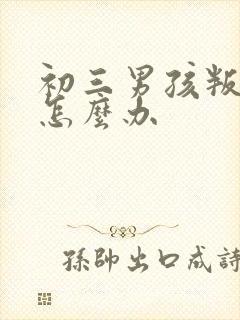 初三男孩叛
怎麼办
孫帥出口成詩